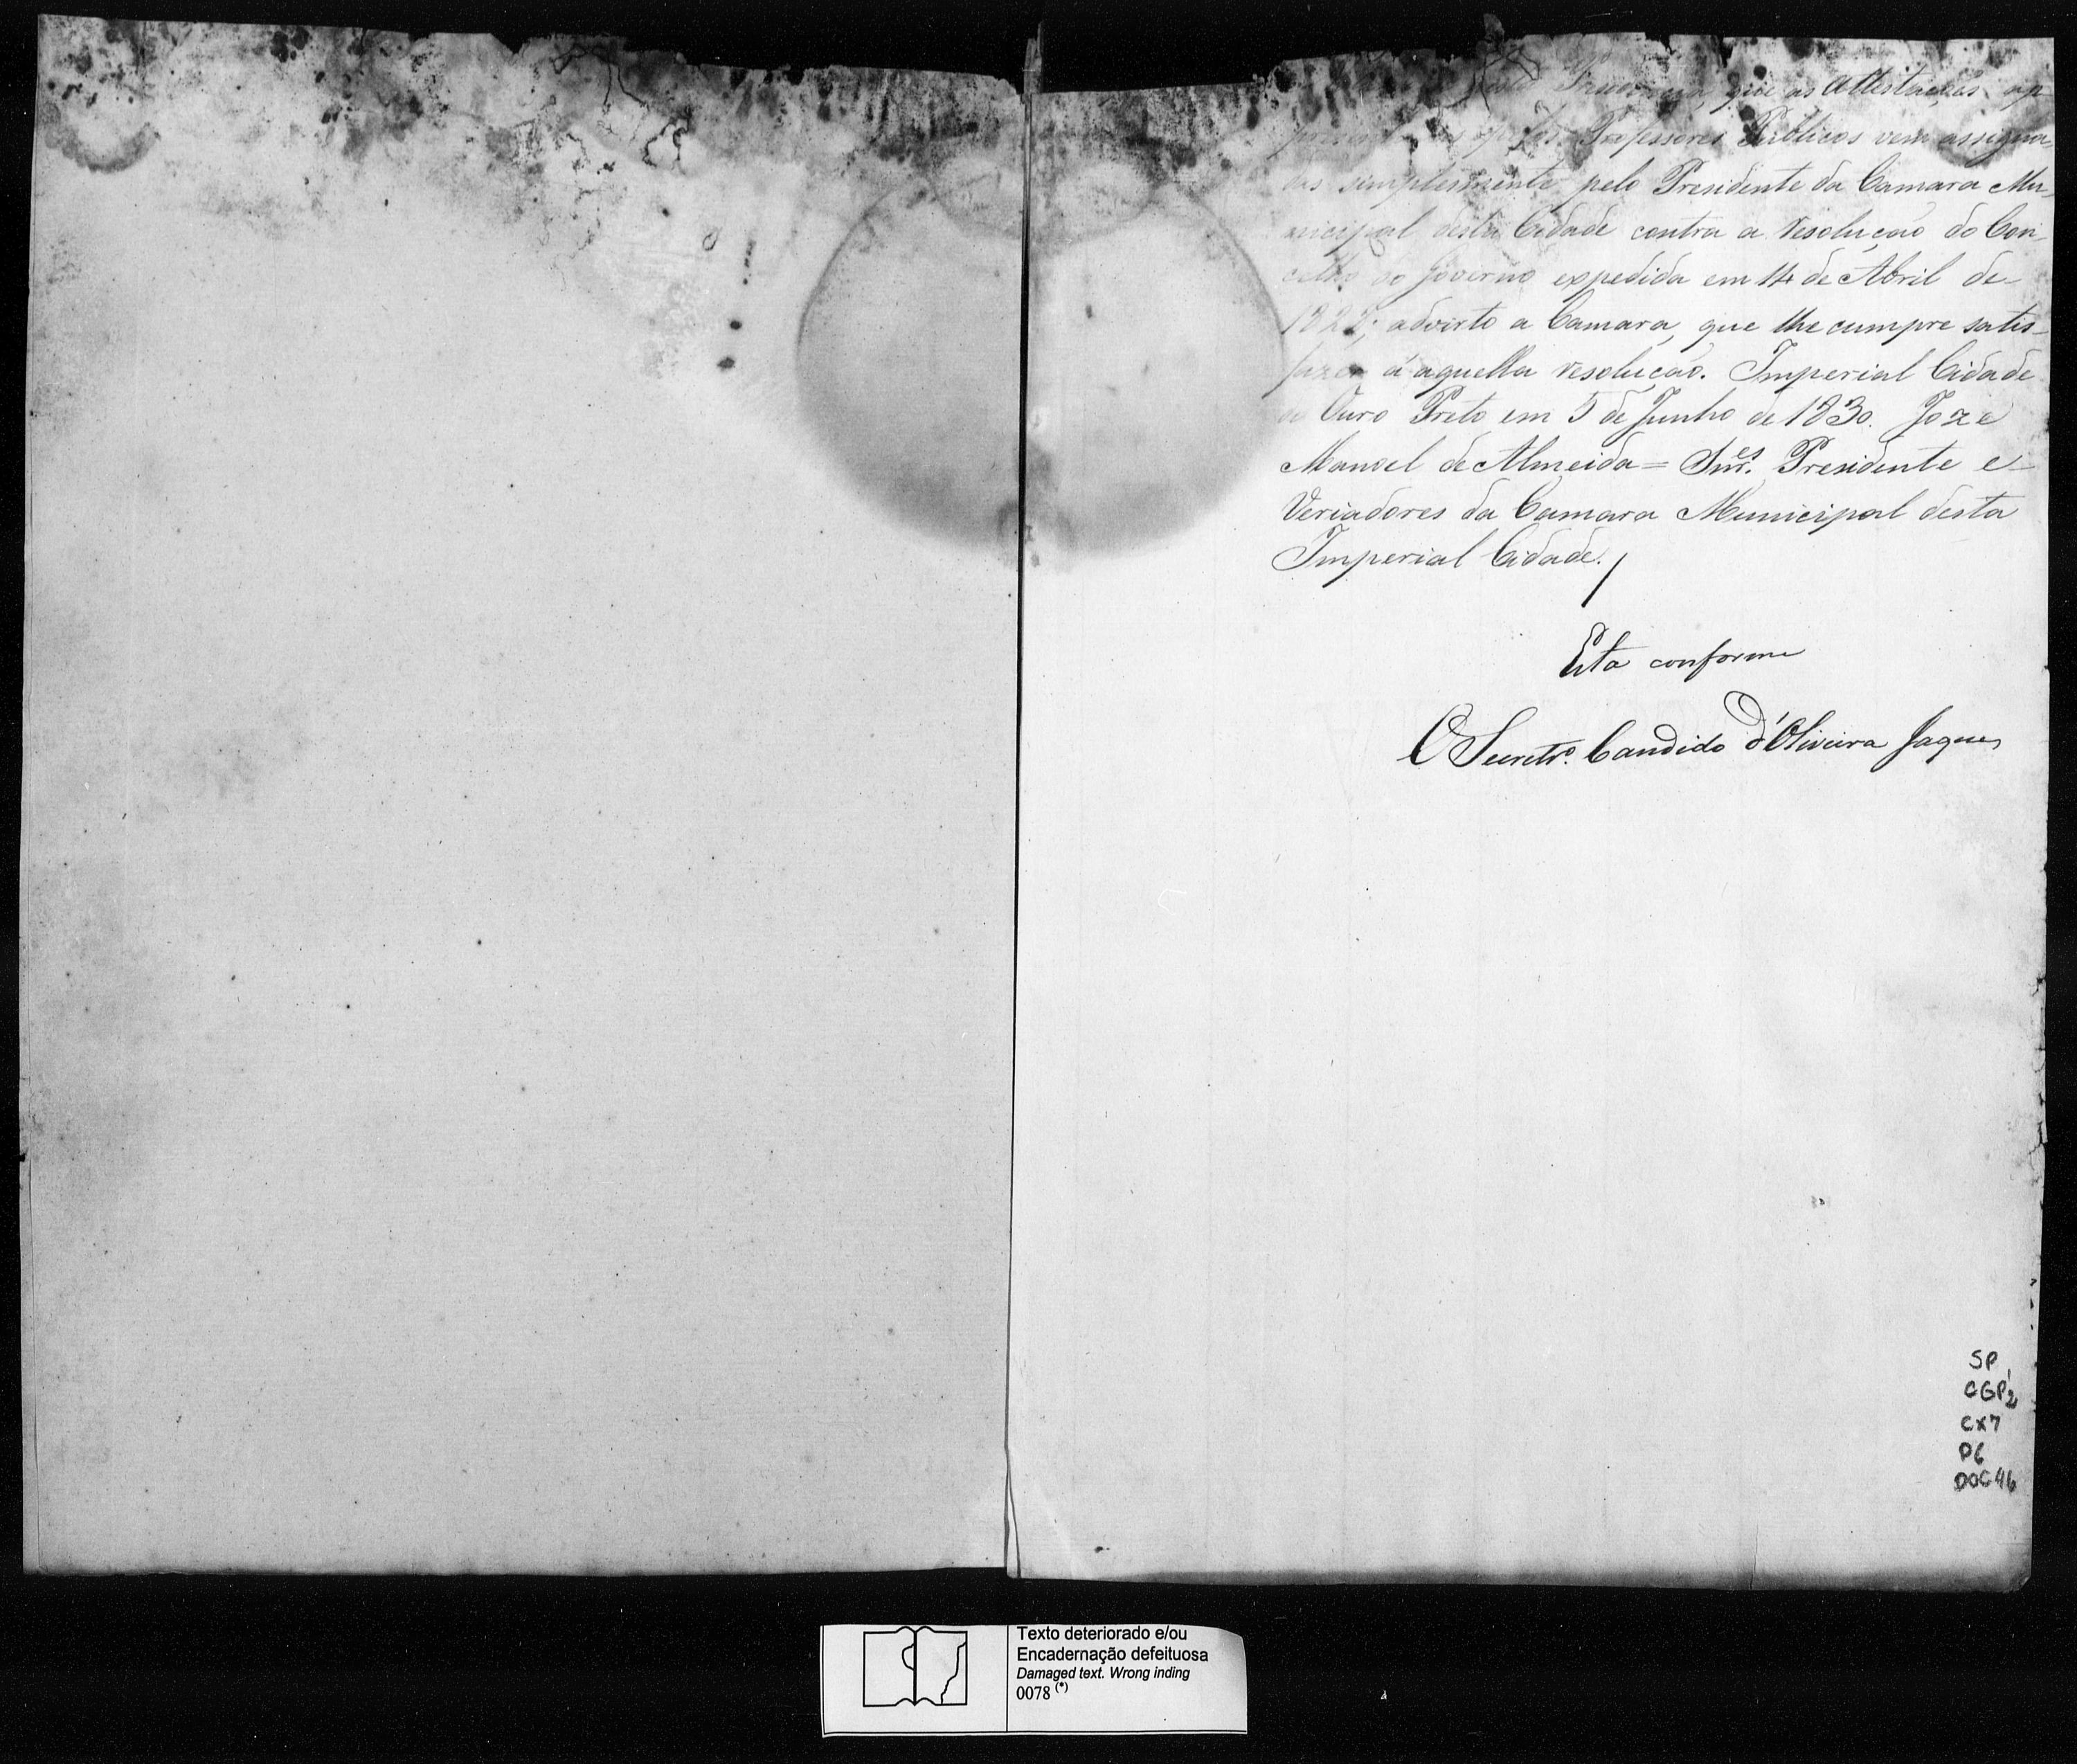 desta Provincia, que as Attestações ap-
pelos Professores Publicos vem assigna-
das simplesmente pelo Presidente da Camara Mu-
nicipal desta Cidade contra a resolução do Con-
celho do Governo expedida em 14 de Abril de
advirto a Camara, que lhe cumpre satis-
fazer á aquella resolução. Imperial Cidade
do Ouro Preto em 5 de Junho de 1830. Joze
Manoel de Almeida = Snr.es Presidente e
Veriadores da Camara Municipal desta
Imperial Cidade.
Esta conforme
O Secretr.o Candido d'Oliveira Jaques
SP
CGP'2
CX7
P6
DOC46
Texto deteriorado e/ou
Encadernação defeituosa
Damaged text. Wrong inding
0078 (*)